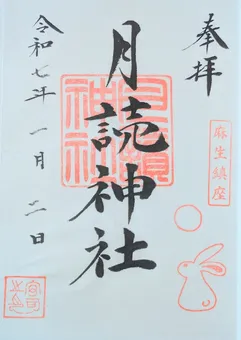 奉拝
麻生鎮座
月読神社
月讀神社
令和七年一月二日
宮司之印